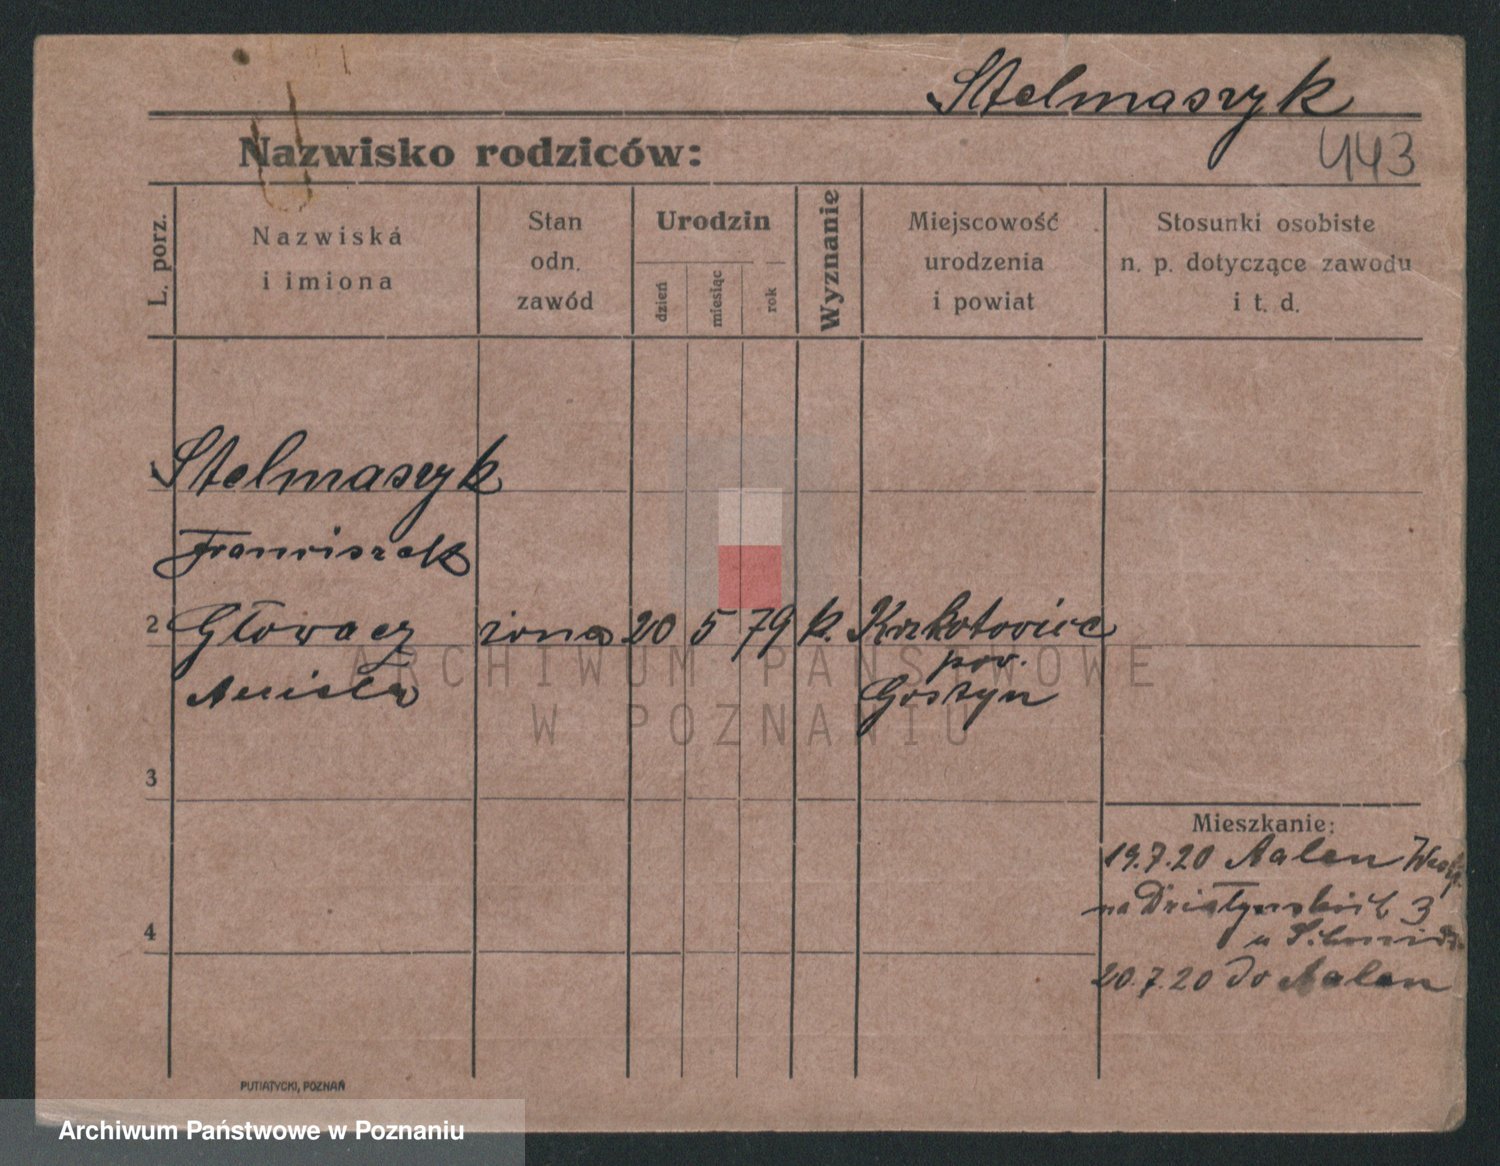 Stelmaszyk
Nazwisko rodziców:
443
L. porz.
Nazwiska
i imiona
Stan
odn.
zawód
Urodzin
dzień
miesiąc
rok
Wyznanie
Miejscowość
urodzenia
i powiat
Stosunki osobiste
n. p. dotyczące zawodu
i t. d.
1 Stelmaszyk
Franciszek
2 Głowacz żona 20 5 79 k.
pow.
Gostyn
3
Mieszkanie:
19.7.20 Aalen
na 3
u
4
20.7.20 do Aalen
PUTIATYCKI, POZNAŃ
ARCHIWUM PAŃSTWOWE
W POZNANIU
Archiwum Państwowe w Poznaniu